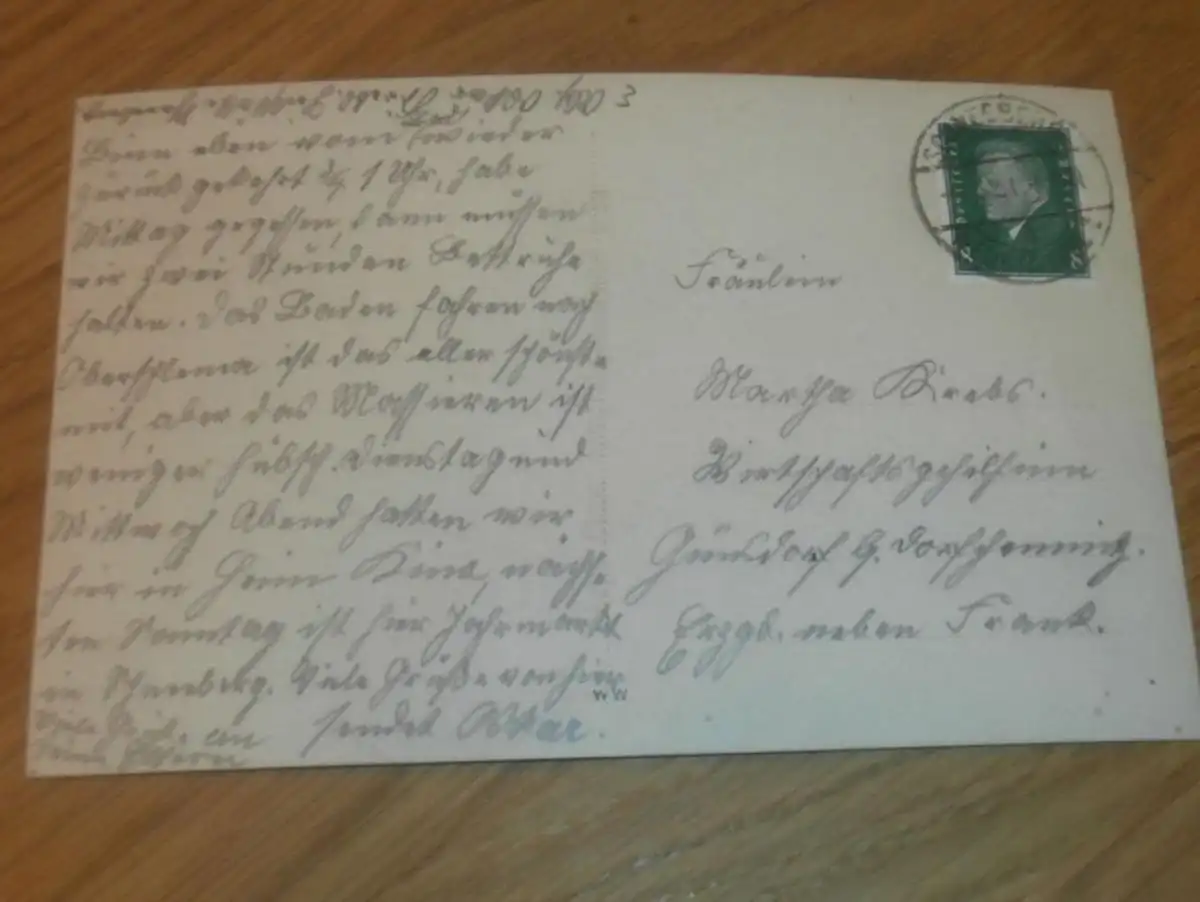 Bin eben vom Bad wieder
zurück gekehrt ½ 1 Uhr, habe
Mittag gegessen, dann müssen
wir zwei Stunden Bettruhe
halten. Das Baden fahren nach
Oberschlema ist das aller schönste
mit, aber das Massieren ist
weniger hübsch. Dienstag und
Mittwoch Abend hatten wir
hier im Heim Kino, nächs-
ten Sonntag ist hier Jahrmarkt
in Schneeberg. Viele Grüße von hier
sendet Oskar.
Viele Grüße an
Deine Eltern
Fräulein
Martha Krebs.
Wirtschaftsgehilfin
Günsdorf b. Dorfchemnitz.
Erzgb. neben Frank.
Deutsches Reich
8 8
W W